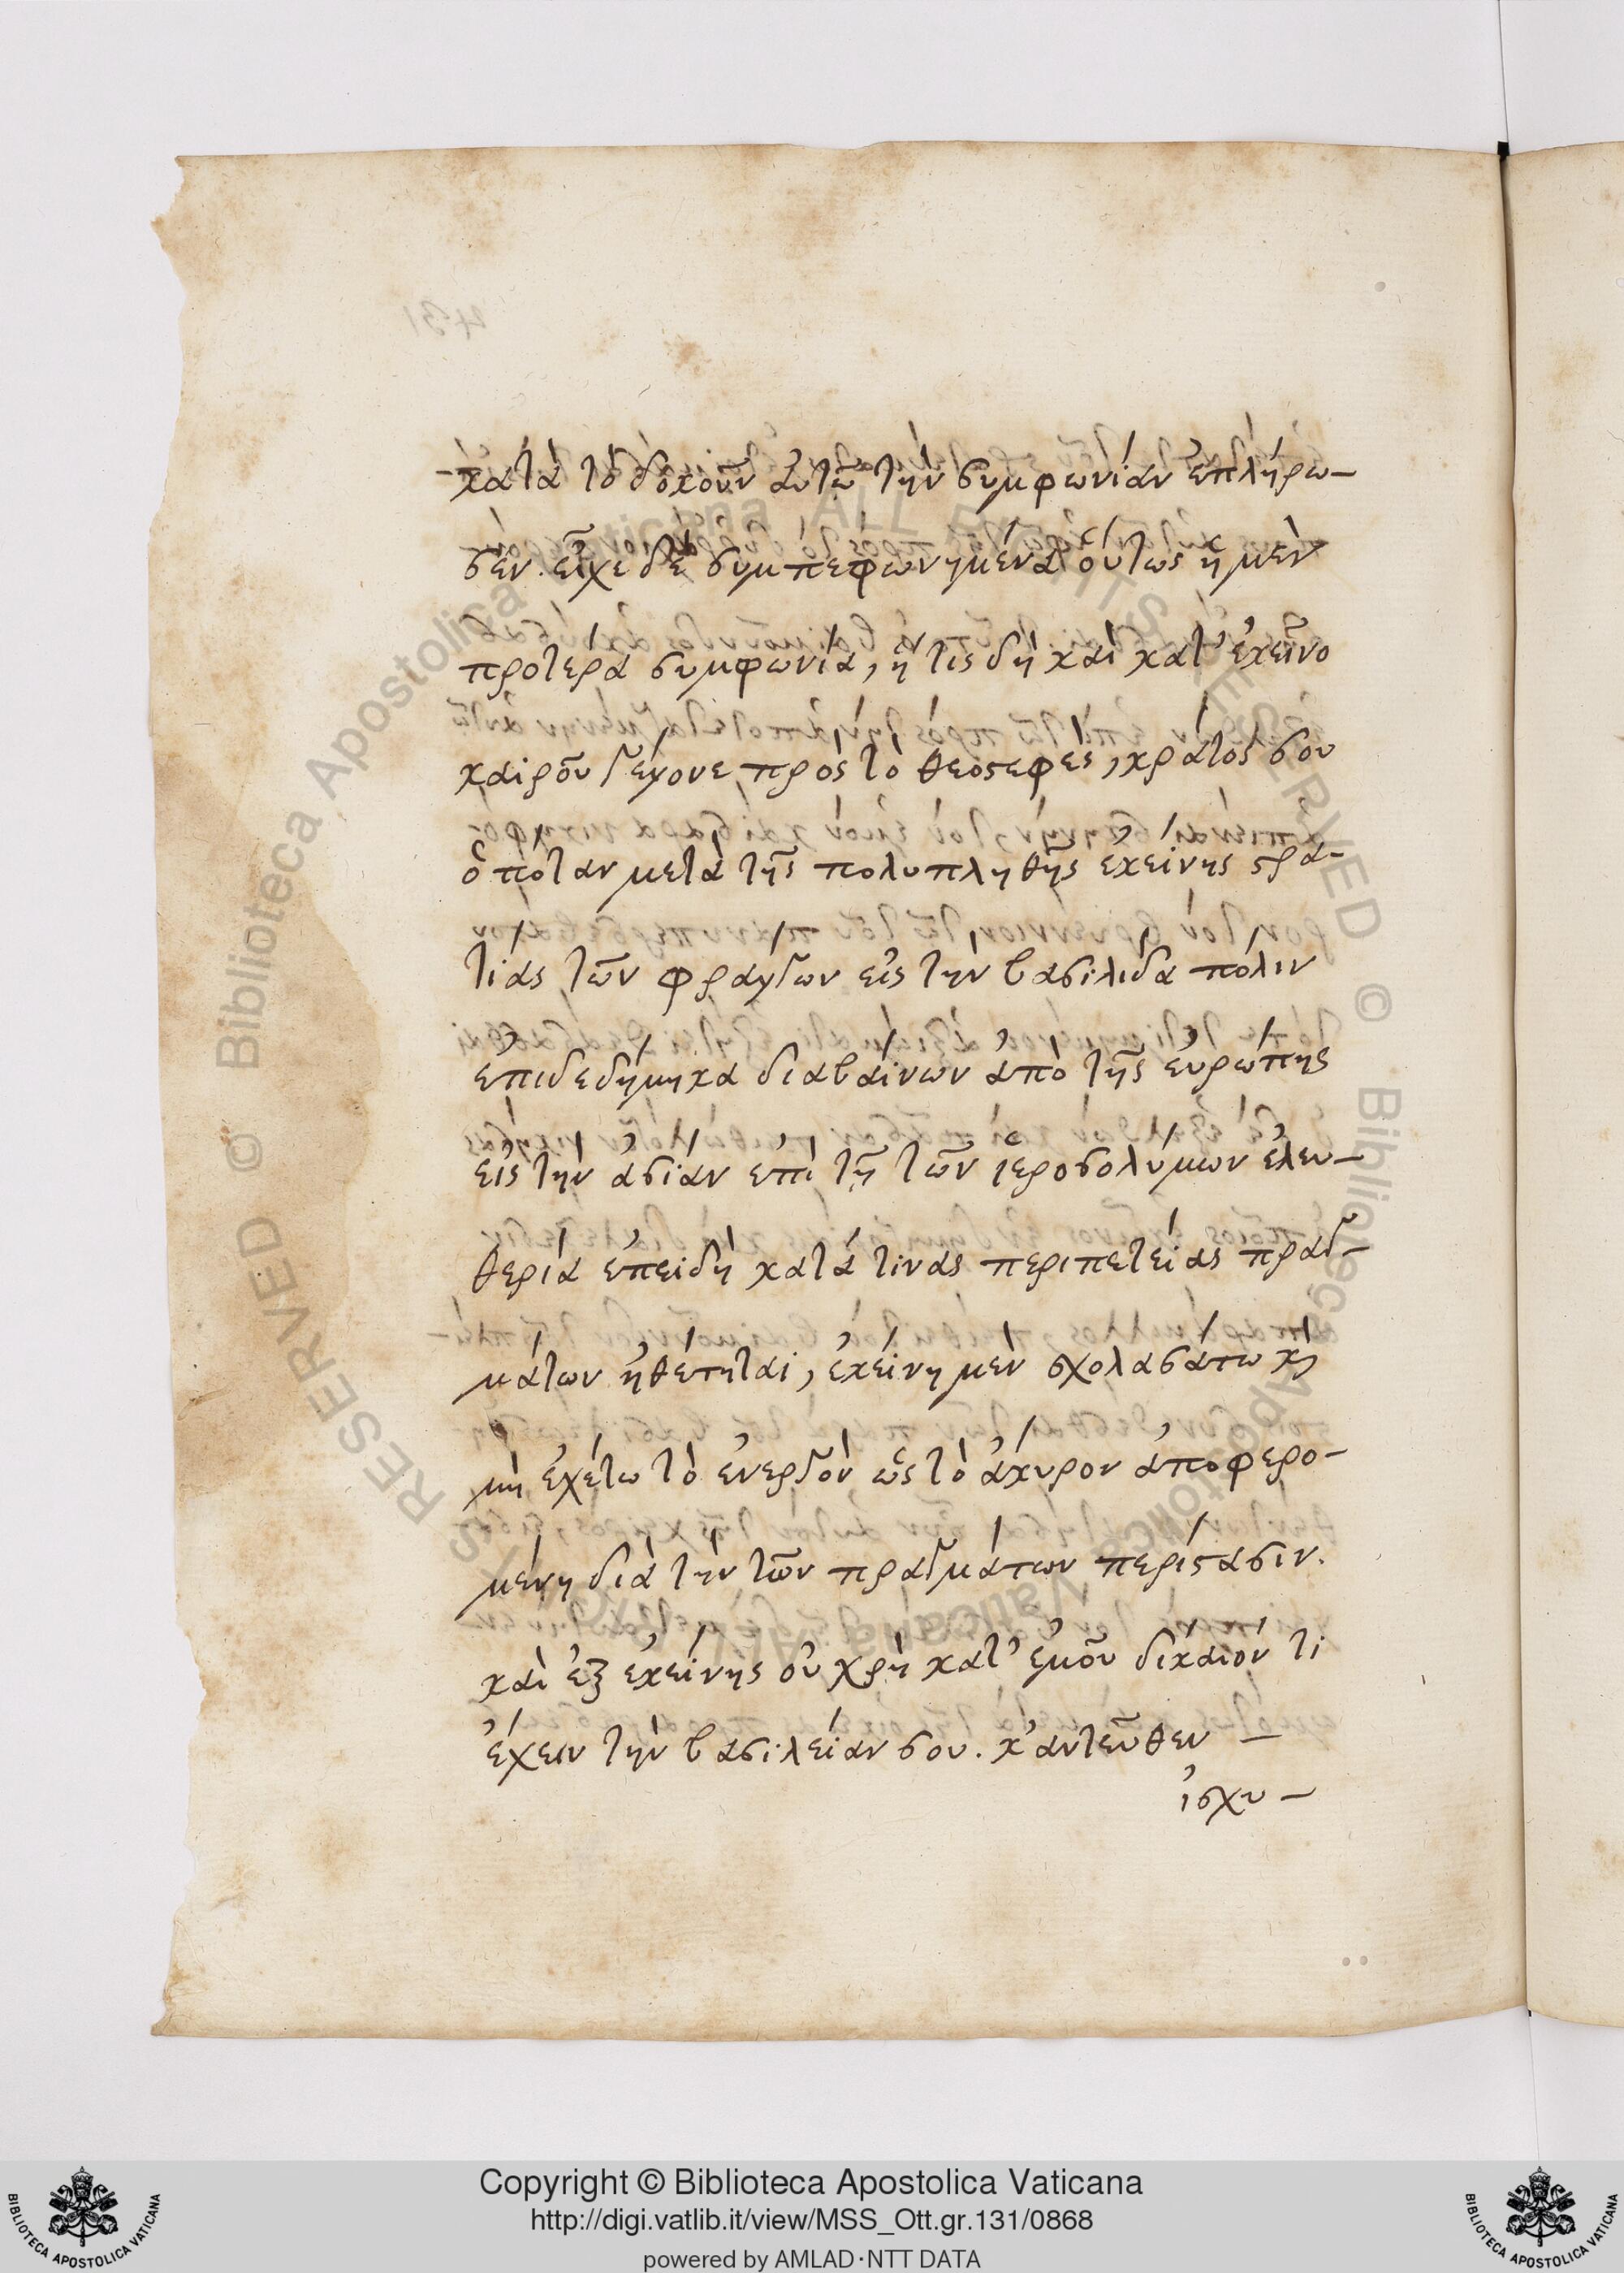 κατὰ τὸ δοκοῦν ἀυτῶ τὴν συμφωνίαν ἐπλήρω-
σεν. εἶχε δὲ συμπεφωνημένα οὕτως ἡ μὲν
προτέρα συμφωνία, ἥ τις δὴ καὶ κατ' ἐκεῖνο
καιροῦ γέγονε προς τὸ θεοστεφες, κράτος σου
ὁπόταν μετὰ τῆς πολυπληθῆς ἐκείνης στρα-
τίας τῶν φράγγων εἰς τὴν βασιλίδα πόλιν
ἐπιδεδήμηκα διαβαίνων ἀπὸ τῆς ἐυρώπης
εἰς τὴν ἀσίαν ἐπὶ τῇ τῶν ἱεροσολύμων ἐλευ-
θερία ἐπειδὴ κατά τινας περιπετείας πραγ-
μάτων ἠθέτηται, ἐκείνη μὲν σχολασάτω κ̀
μὴ ἐχέτω τὸ ἐνεργὸν ὡς τὸ ἄκυρον ἀποφερο-
μένη διὰ τὴν τῶν πραγμάτων περίστασιν.
καὶ ἐξ ἐκείνης οὐ χρὴ κατ' ἐμοῦ δίκαιόν τι
ἔχειν τὴν βασιλείαν σου. κ'αντεῦθεν -
ἰσχυ-
RESERVED © Biblioteca Apostolica Vaticana ALL RIGHTS RESERVED © Biblioteca Apostolica Vaticana ALL RIGHTS
BIBLIOTECA APOSTOLICA VATICANA
Copyright © Biblioteca Apostolica Vaticana
http://digi.vatlib.it/view/MSS_Ott.gr.131/0868
powered by AMLAD·NTT DATA
BIBLIOTECA APOSTOLICA VATICANA